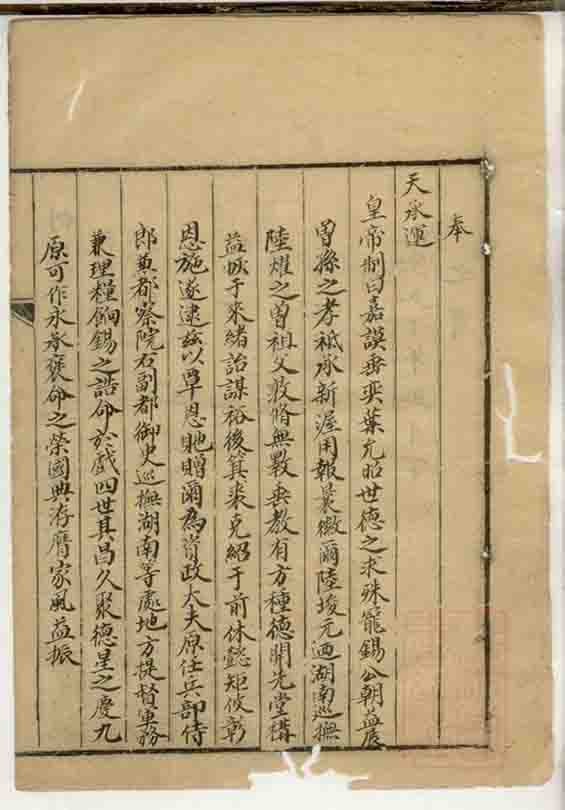 奉
天承運
皇帝制曰嘉謨垂奕葉尤昭世德之求殊寵錫公朝益展
曾孫之孝祗承新渥用報曩徽爾陸埈元迺湖南巡撫
陸燿之曾祖父敦脩無斁垂教有方種德開先堂構
益恢于來緒詒謀裕後箕裘克紹于前休懿矩攸彰
恩施遂逮玆以覃恩貤贈爾為資政大夫原任兵部侍
郎兼都察院右副都御史巡撫湖南等處地方提督軍務
兼理糧餉錫之誥命於戲四世其昌久聚德星之慶九
原可作永承褒命之榮國典洊膺家風益振